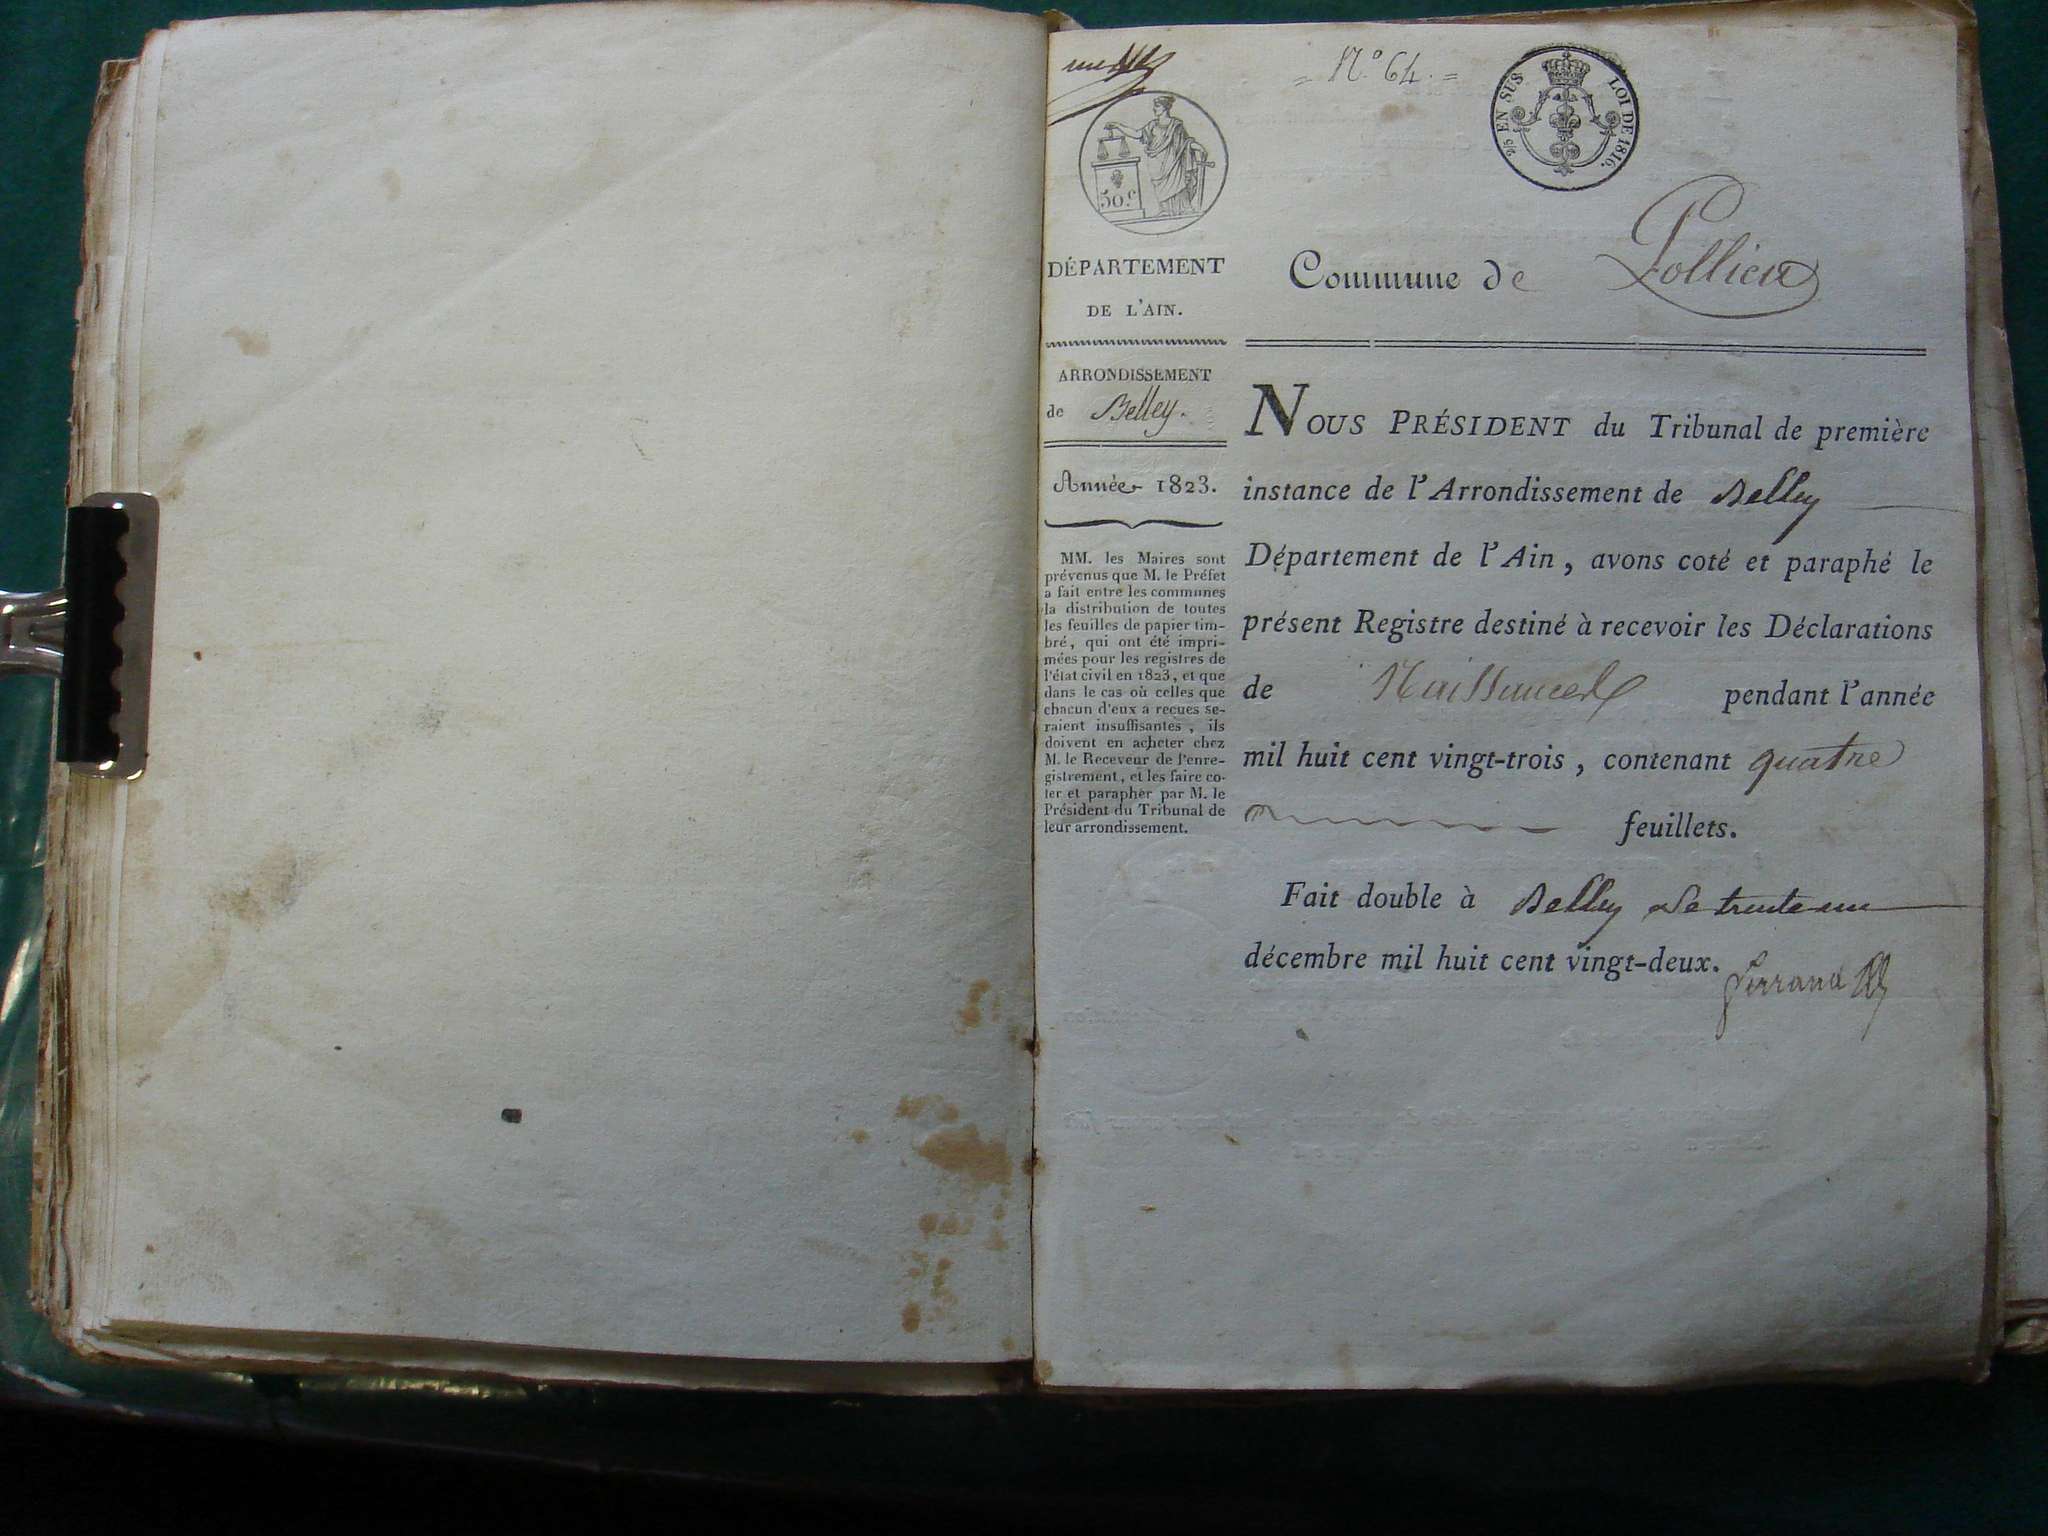 N.° 64.
2/5 EN SUS LOI DE 1816.
50.c
DÉPARTEMENT
DE L'AIN.
ARRONDISSEMENT
de Belley.
Année 1823.
MM. les Maires sont
prévenus que M. le Préfet
a fait entre les communes
la distribution de toutes
les feuilles de papier tim-
bré, qui ont été impri-
mées pour les registres de
l'état civil en 1823, et que
dans le cas où celles que
chacun d'eux a reçues se-
raient insuffisantes, ils
doivent en acheter chez
M. le Receveur de l'enre-
gistrement, et les faire co-
ter et parapher par M. le
Président du Tribunal de
leur arrondissement.
Commune de Pollieu
NOUS PRÉSIDENT du Tribunal de première
instance de l'Arrondissement de Belley
Département de l'Ain, avons coté et paraphé le
présent Registre destiné à recevoir les Déclarations
de Naissances pendant l'année
mil huit cent vingt-trois, contenant quatre
feuillets.
Fait double à Belley le trente un
décembre mil huit cent vingt-deux.
Ferrand